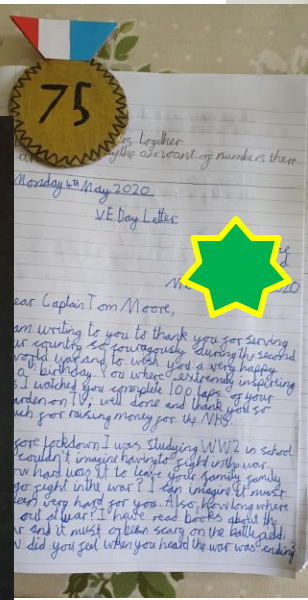 75
together
the amount of numbers there
Monday 4th May 2020
VE Day Letter
20
ear Captain Tom Moore,
am writing to you to thank you for serving
ur country so fouragously during the second
world war and to wish you a very happy
birthday. You where extremly inspireing
s I watched you complete 100 laps of your
arden on TV; well done and thank you so
uch for raising money for the NHS.
gore lockdown I was studying WW2 in school
couldn't imagine having to fight in the war.
w hard was it to leave your family family
go fight in the war? I can imagine it must
been very hard for you. Also, how long where
out at war? I have read books about the
r and it must of been scary on the battlefield.
w did you feel when you heard the war was ending